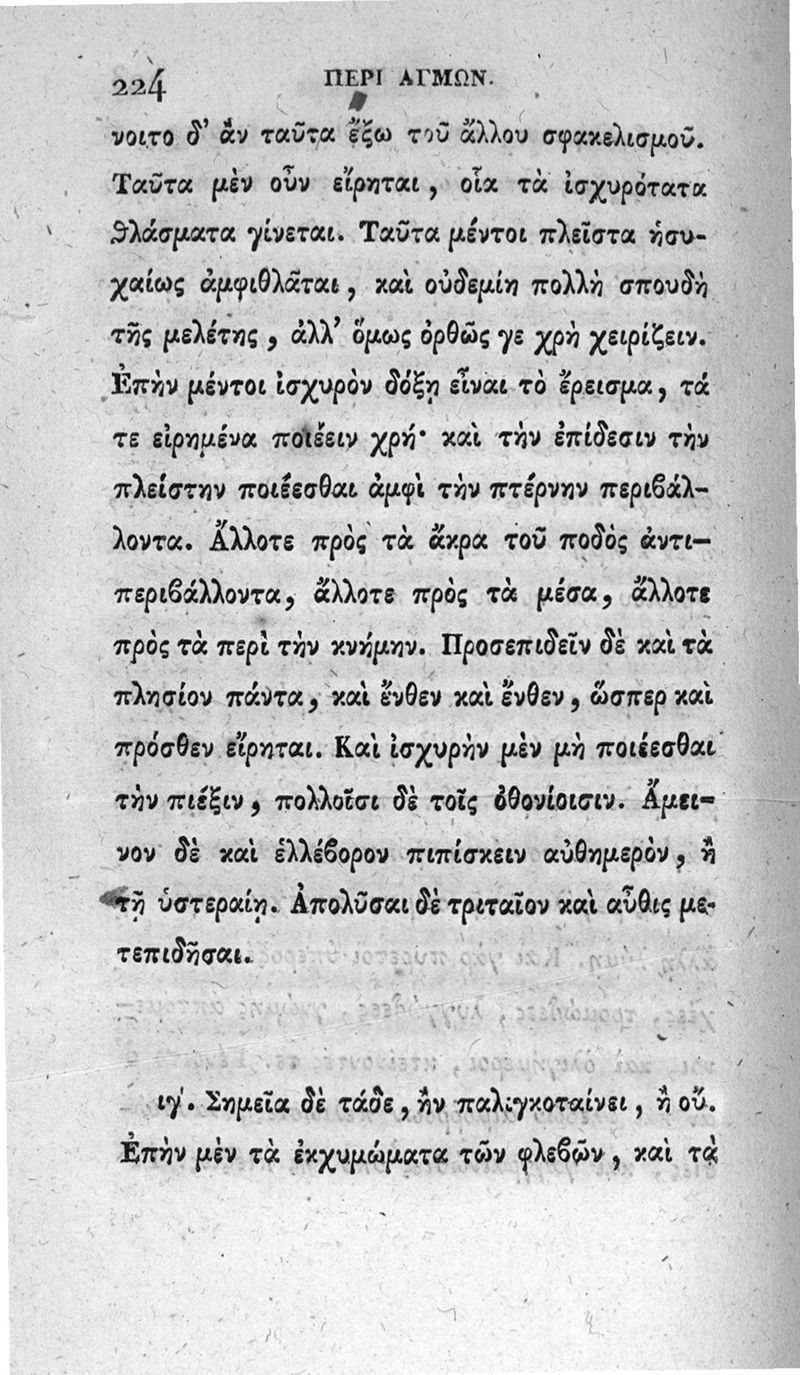 224
ΠΕΡΙ ΑΓΜΩΝ.
νοιτο δ’ ἂν ταῦτα ἔξω τοῦ ἄλλου σφακελισμοῦ.
Ταῦτα μὲν οὖν εἴρηται, οἷα τὰ ἰσχυρότατα
ϑλάσματα γίνεται. Ταῦτα μέντοι πλεῖστα ἡσυ-
χαίως ἀμφιθλᾶται, καὶ οὐδεμίη πολλὴ σπουδὴ
τῆς μελέτης, ἀλλ’ ὅμως ὀρθῶς γε χρὴ χειρίζειν.
Ἐπὴν μέντοι ἰσχυρὸν δόξῃ εἶναι τὸ ἔρεισμα, τά
τε εἰρημένα ποιέειν χρή· καὶ τὴν ἐπίδεσιν τὴν
πλείστην ποιέεσθαι ἀμφὶ τὴν πτέρνην περιϐάλ-
λοντα. Ἄλλοτε πρὸς τὰ ἄκρα τοῦ ποδὸς ἀντι-
περιϐάλλοντα, ἄλλοτε πρὸς τὰ μέσα, ἄλλοτε
πρὸς τὰ περὶ τὴν κνήμην. Προσεπιδεῖν δὲ καὶ τὰ
πλησίον πάντα, καὶ ἔνθεν καὶ ἔνθεν, ὥσπερ καὶ
πρόσθεν εἴρηται. Καὶ ἰσχυρὴν μὲν μὴ ποιέεσθαι
τὴν πιέξιν, πολλοῖσι δὲ τοῖς ὀθονίοισιν. Ἄμει-
νον δὲ καὶ ἑλλέϐορον πιπίσκειν αὐθημερὸν, ἢ
τῇ ὑστεραίῃ. Ἀπολῦσαι δὲ τριταῖον καὶ αὖθις με-
τεπιδῆσαι.
ιγ'. Σημεῖα δὲ τάδε, ἢν παλιγκοταίνει, ἢ οὔ.
Ἐπὴν μὲν τὰ ἐκχυμώματα τῶν φλεϐῶν, καὶ τὰ